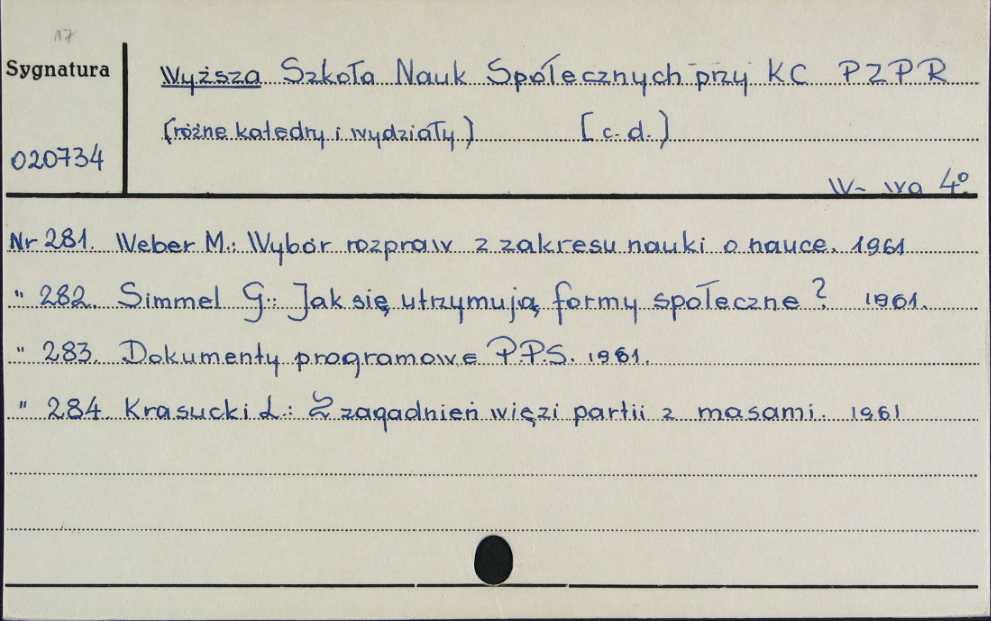 17
Sygnatura
Wyższa Szkoła Nauk Społecznych przy KC PZPR
(różne katedry i wydziały) [c.d.)
020734
W-wa 4°
Nr 281. Weber M.: Wybór rozpraw z zakresu nauki o nauce. 1961
" 282. Simmel G.: Jak się utrzymują formy społeczne? 1961.
" 283. Dokumenty programowe P.P.S. 1961.
" 284 Krasucki L.: Z zagadnień więzi partii z masami. 1961